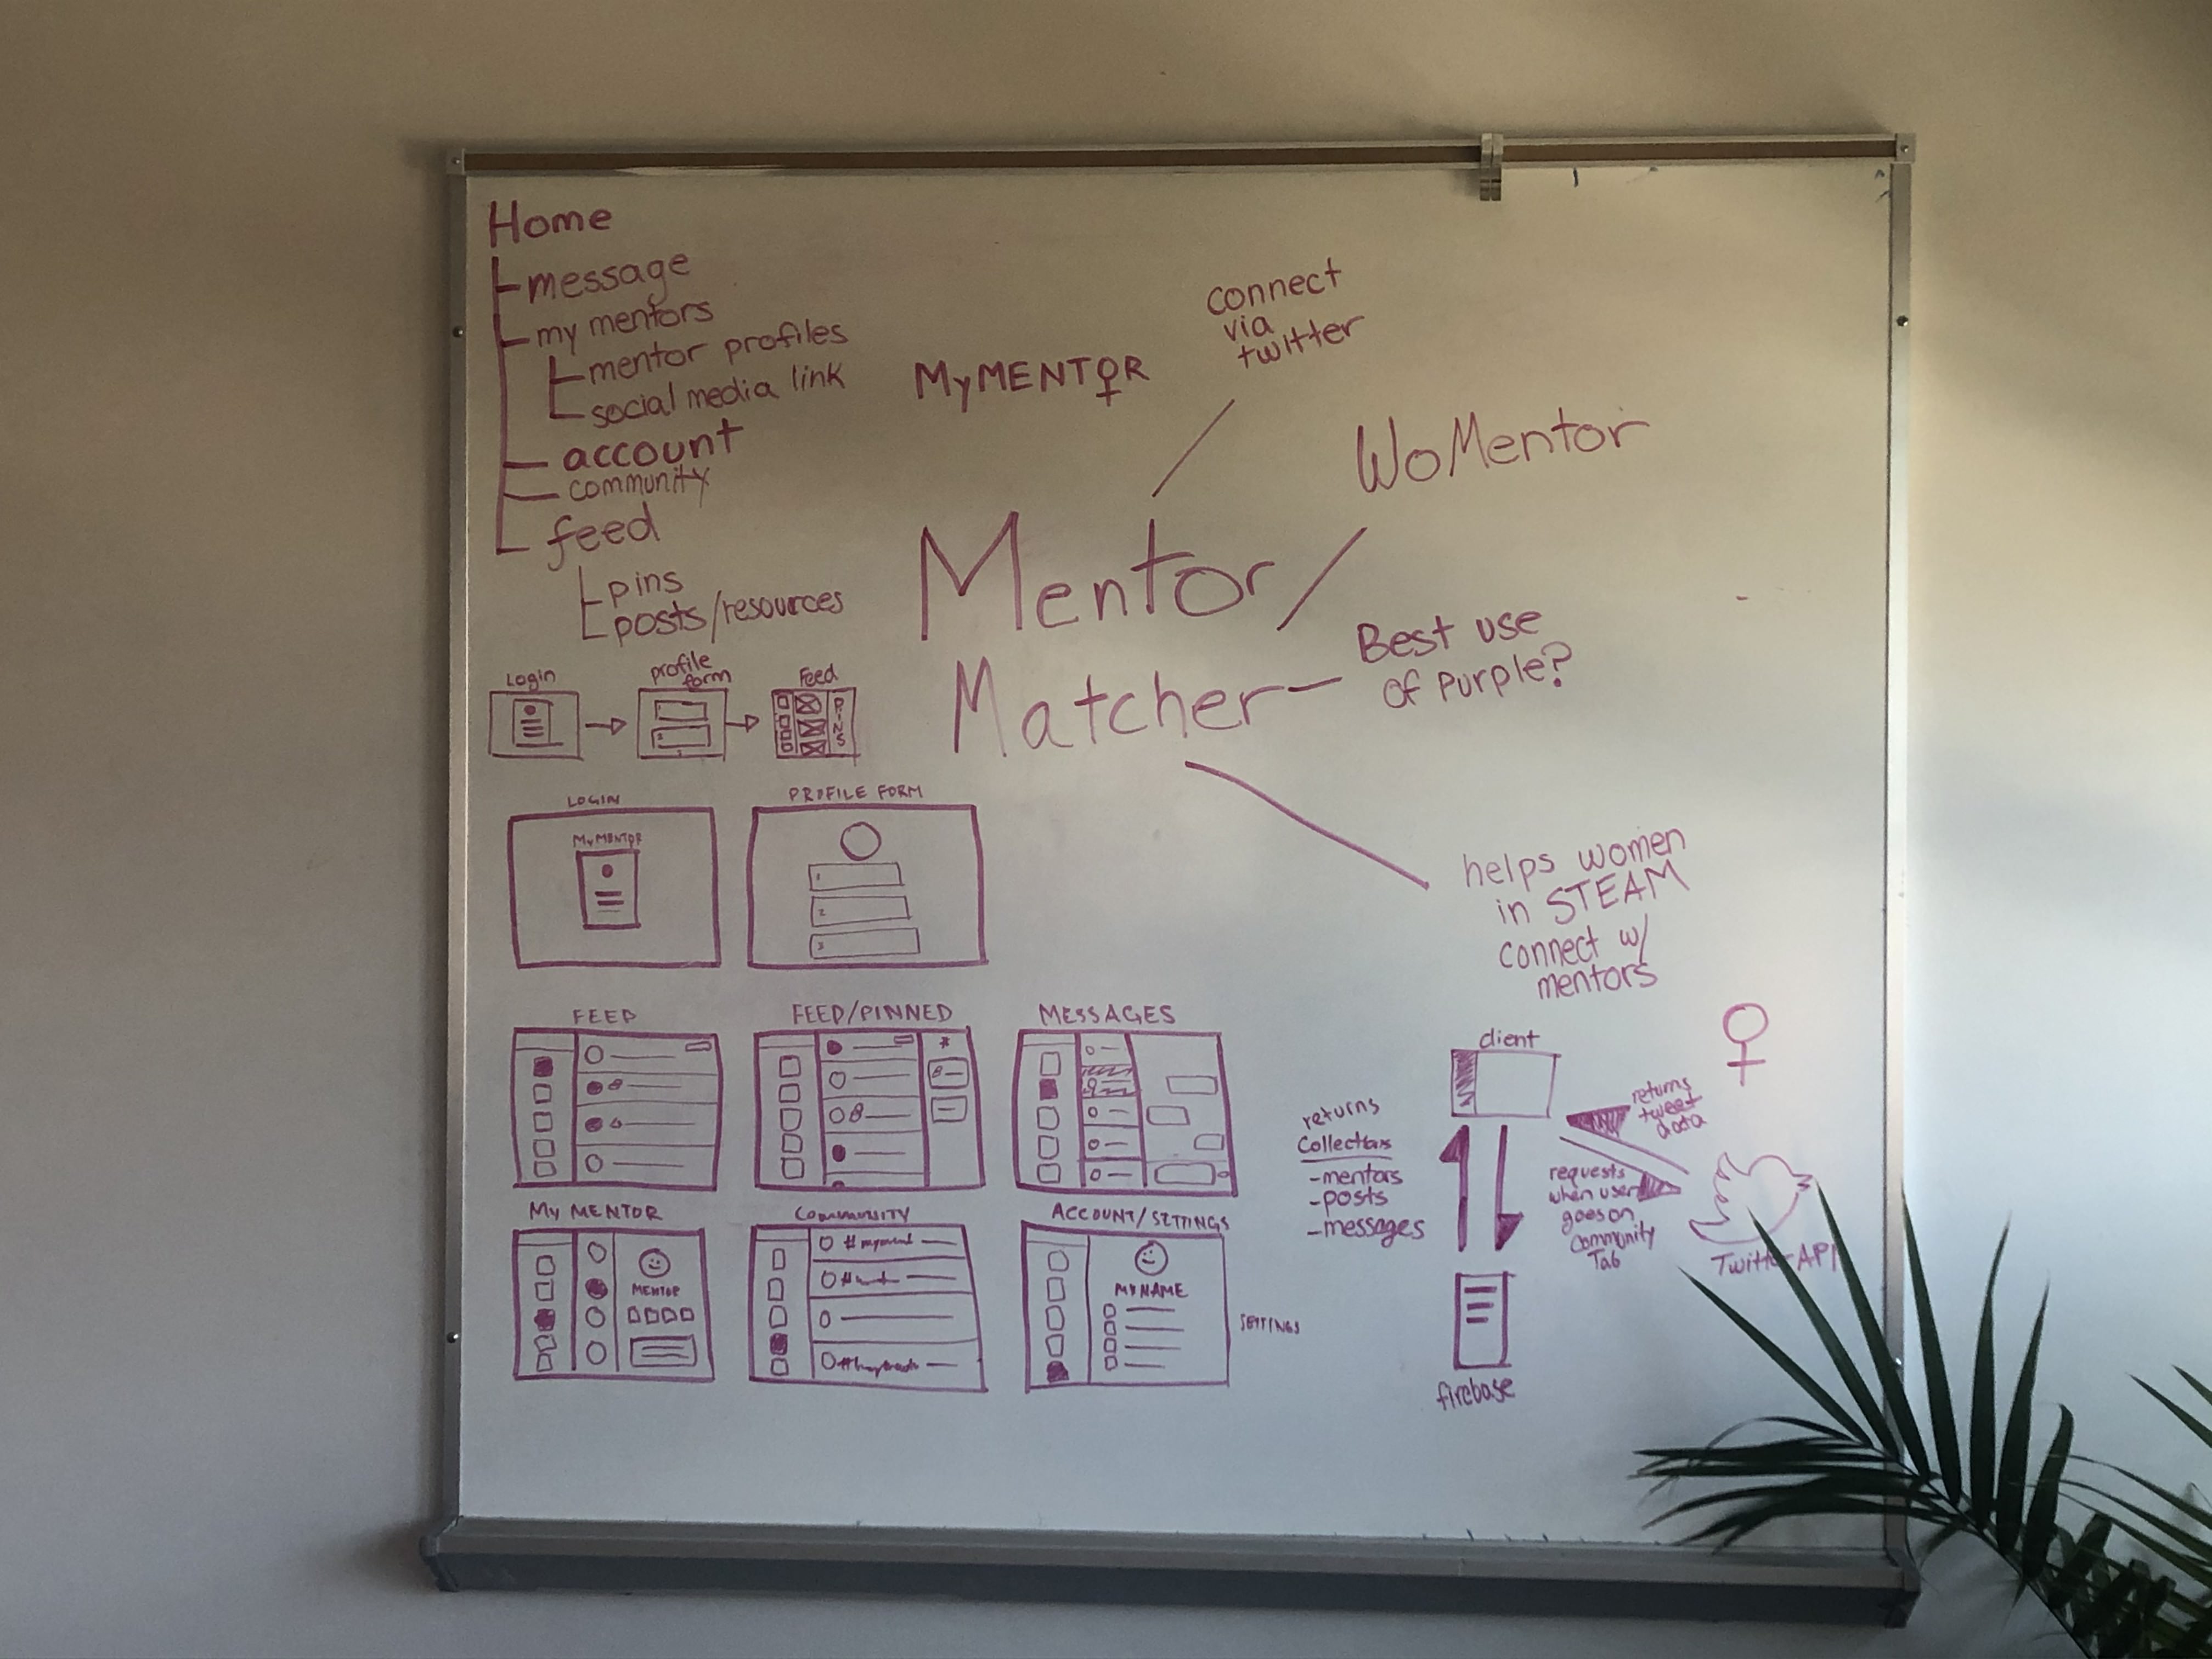 Home
message
my mentors
mentor profiles
social media link
account
community
feed
pins
posts/resources
MyMENTOR
connect
via
twitter
WoMentor
Mentor
Matcher
Best use
of purple?
helps women
in STEAM
connect w/
mentors
Login
profile
form
Feed
PINS
LOGIN
MyMENTOR
PROFILE FORM
1
2
3
FEED
FEED/PINNED
*
MESSAGES
My MENTOR
MENTOR
COMMUNITY
ACCOUNT/SETTINGS
MY NAME
SETTINGS
client
returns
tweet
data
returns
Collections
-mentors
-posts
-messages
requests
when user
goes on
Community
Tab
Twitter API
firebase